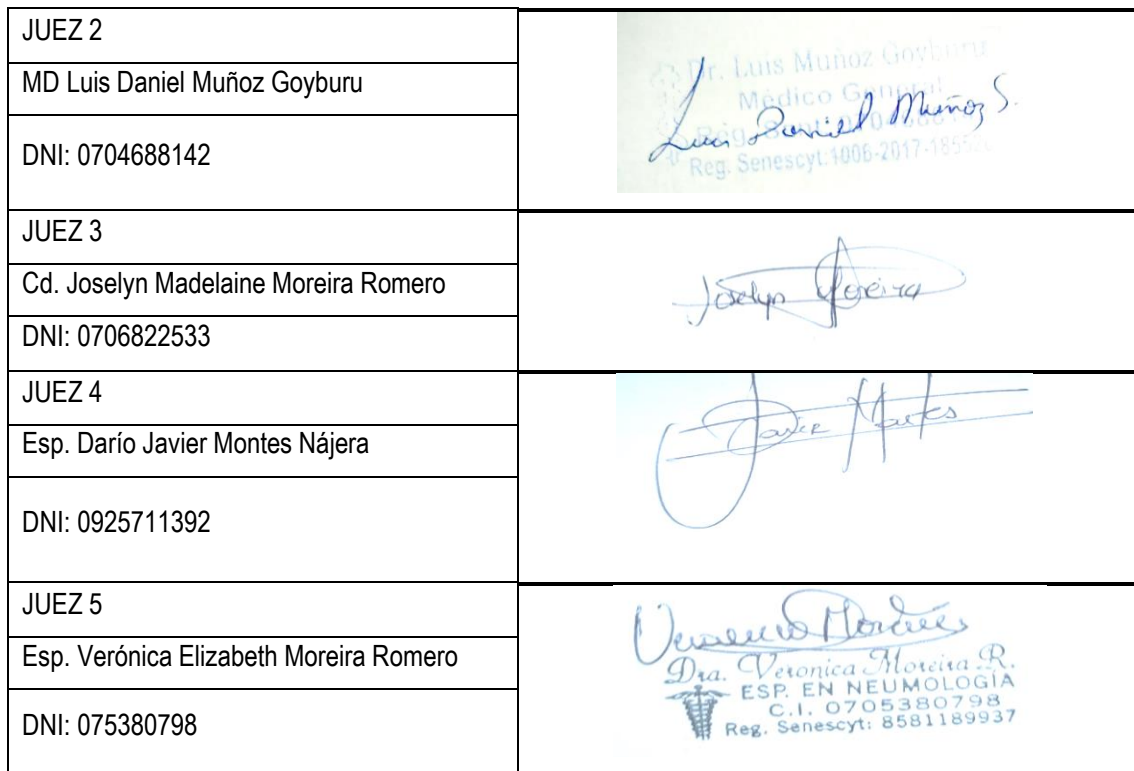 JUEZ 2
MD Luis Daniel Muñoz Goyburu
DNI: 0704688142
Dr. Luis Muñoz Goyburu
Médico General
Luis Daniel Muñoz S.
Reg. Senescyt: 1006-2017-
JUEZ 3
Cd. Joselyn Madelaine Moreira Romero
DNI: 0706822533
Joselyn Moreira
JUEZ 4
Esp. Darío Javier Montes Nájera
DNI: 0925711392
Javier Montes
JUEZ 5
Esp. Verónica Elizabeth Moreira Romero
DNI: 075380798
Dra. Veronica Moreira R.
ESP. EN NEUMOLOGÍA
C.I. 0705380798
Reg. Senescyt: 8581189937